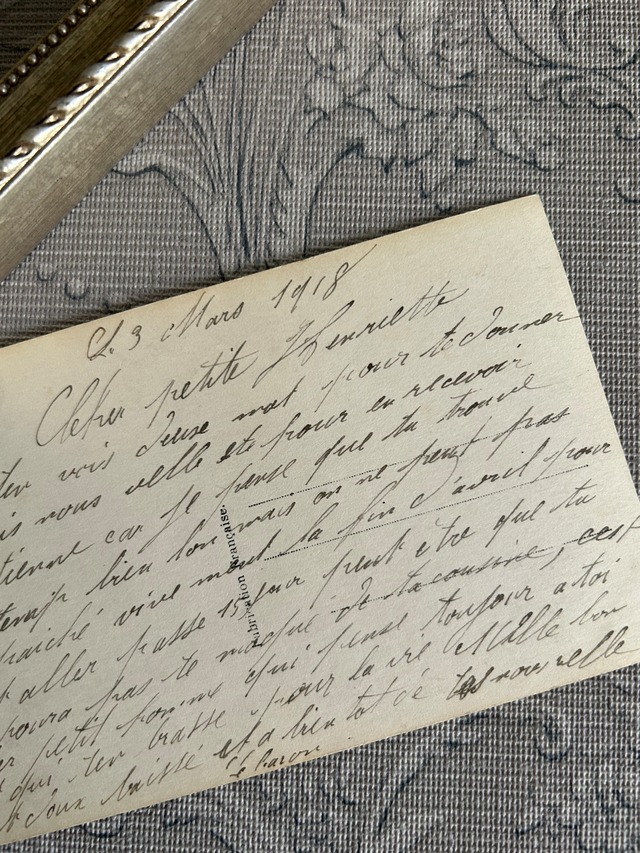 Le 3 Mars 1918
Cher petite Henriette
ten vois deuse mot pour te donner
is nous velle et pour en recevoir
tienne car je panse que tu trouve
temp bien lon mais on ne peut pas
fraiché vive ment la fin d'avril pour
aller passe 15 jour peut etre que tu
poura pas te moqué de ta cousine, cest
petit homme qui panse toujour a toi
qui ten brasse pour la vie Mille bon
doux baissé et a bien tot dé tes nous velle
le baron
Fabrication Française.